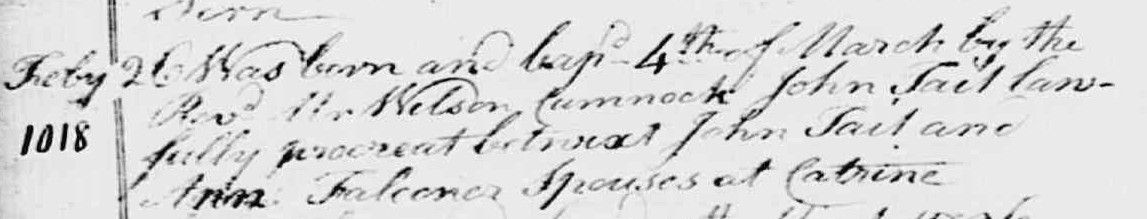 Born
Feby 26 Was born and bapd 4th of March by the
Revd Mr Wilson Cumnock John Tait law-
1018 fully procreat betwixt John Tait and
Ann Falconer Spouses at Catrine